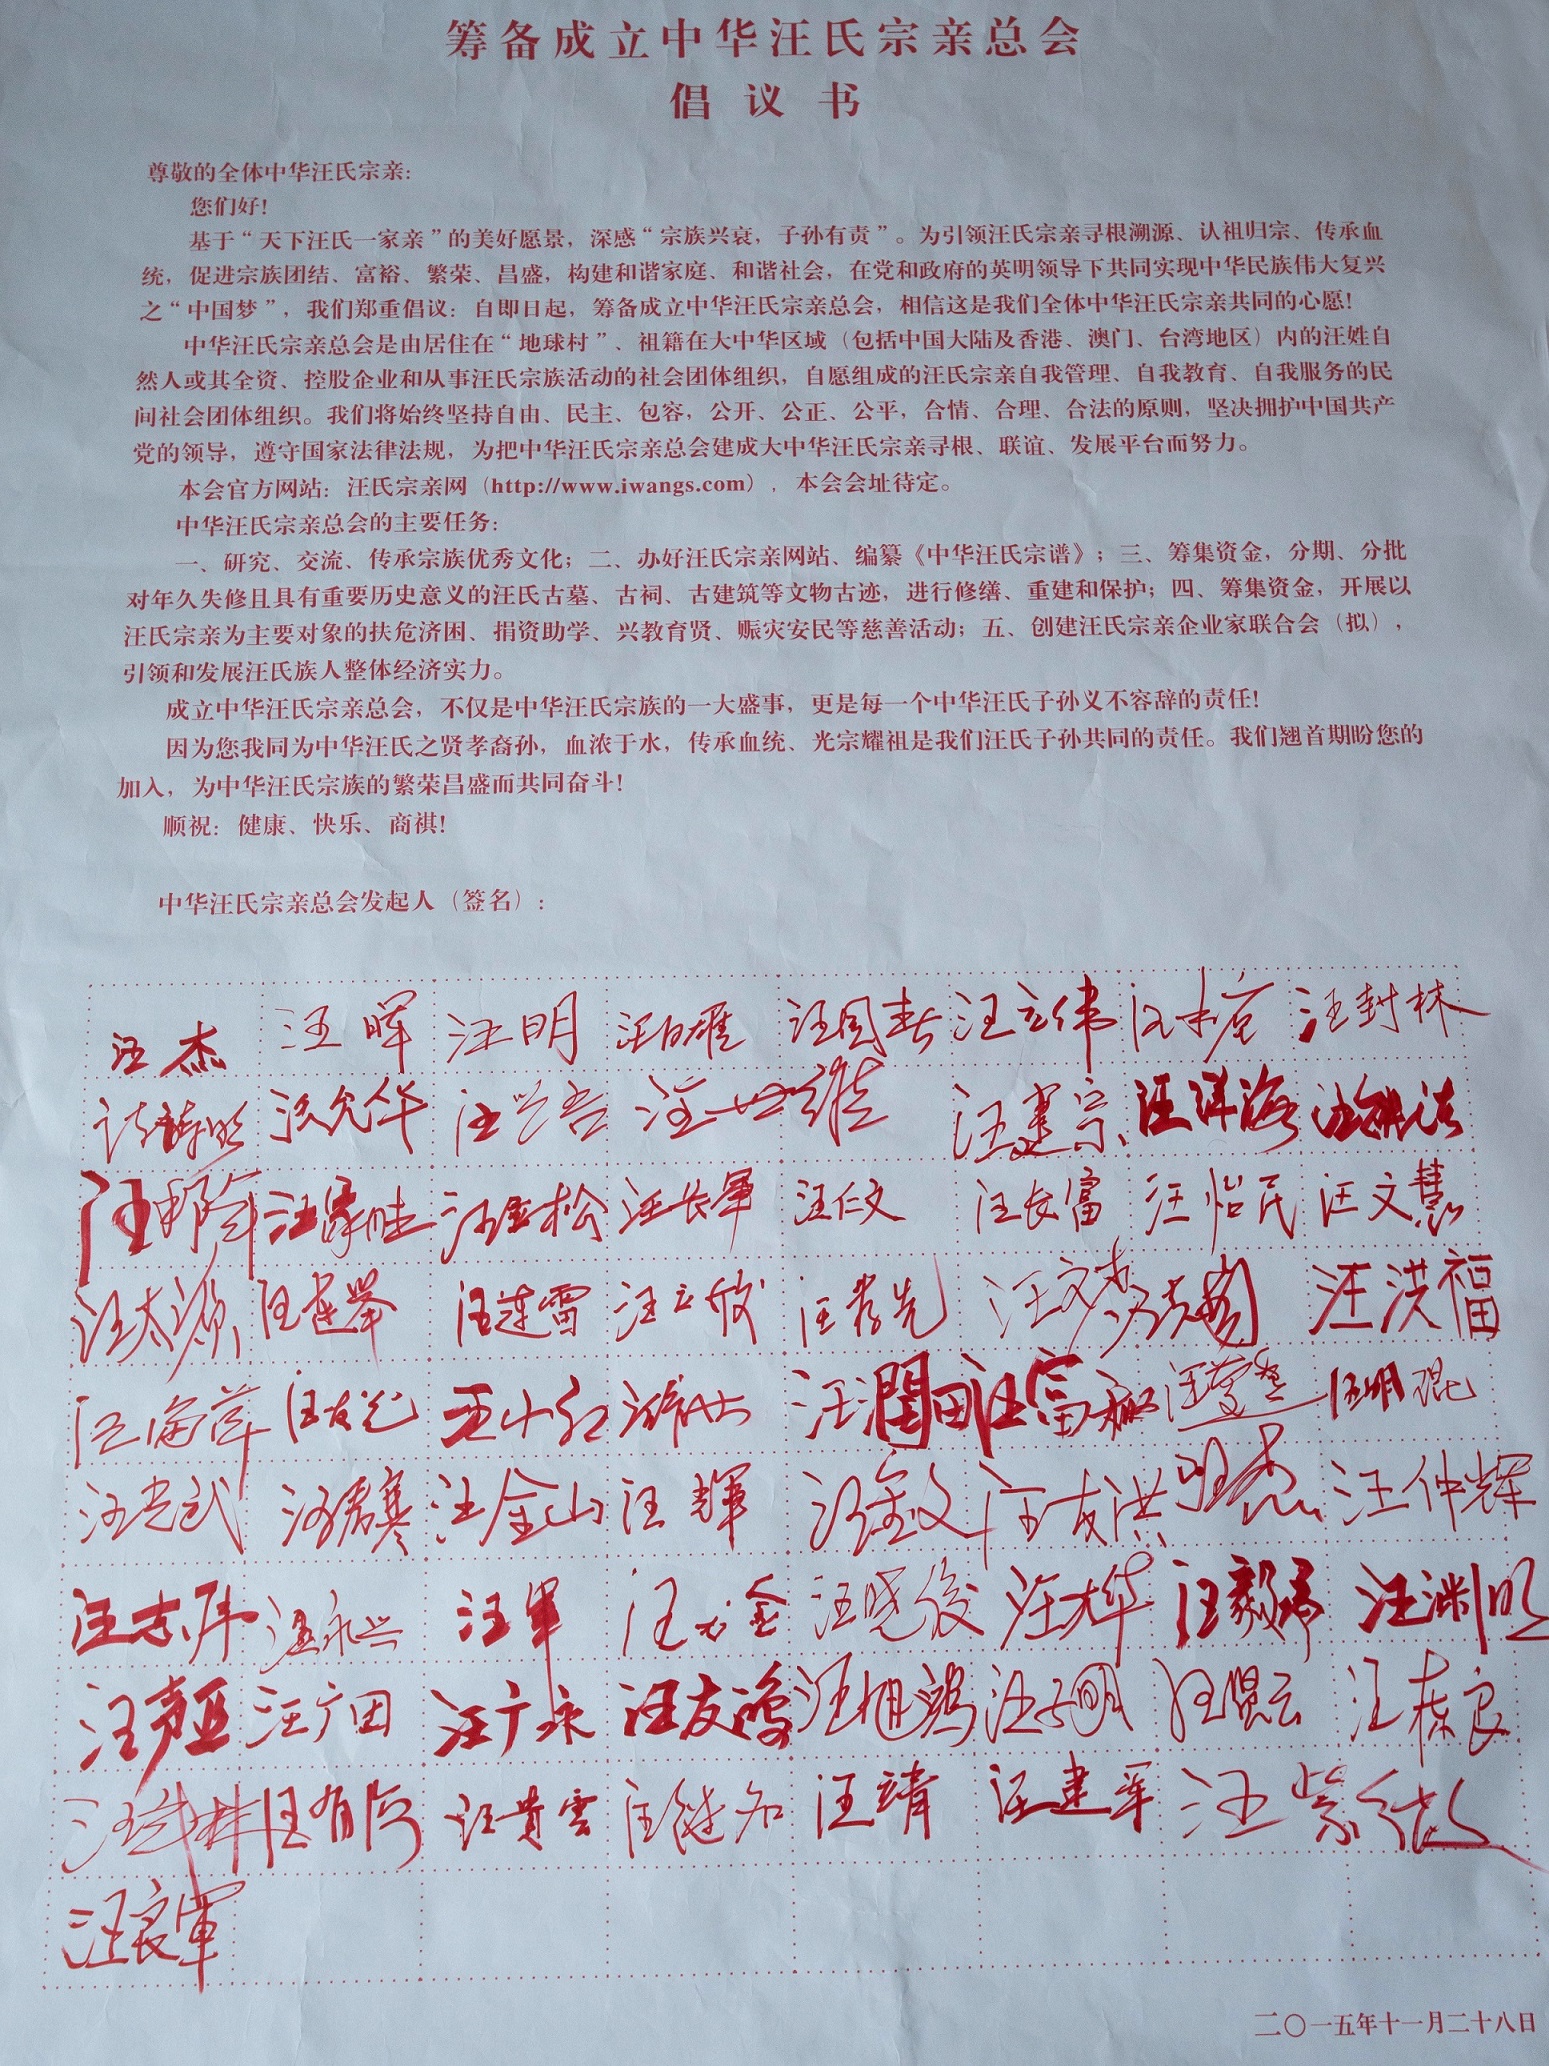 筹备成立中华汪氏宗亲总会
倡议书
尊敬的全体中华汪氏宗亲：
您们好！
基于“天下汪氏一家亲”的美好愿景，深感“宗族兴衰，子孙有责”。为引领汪氏宗亲寻根溯源、认祖归宗、传承血
统，促进宗族团结、富裕、繁荣、昌盛，构建和谐家庭、和谐社会，在党和政府的英明领导下共同实现中华民族伟大复兴
之“中国梦”，我们郑重倡议：自即日起，筹备成立中华汪氏宗亲总会，相信这是我们全体中华汪氏宗亲共同的心愿！
中华汪氏宗亲总会是由居住在“地球村”、祖籍在大中华区域（包括中国大陆及香港、澳门、台湾地区）内的汪姓自
然人或其全资、控股企业和从事汪氏宗族活动的社会团体组织，自愿组成的汪氏宗亲自我管理、自我教育、自我服务的民
间社会团体组织。我们将始终坚持自由、民主、包容，公开、公正、公平，合情、合理、合法的原则，坚决拥护中国共产
党的领导，遵守国家法律法规，为把中华汪氏宗亲总会建成大中华汪氏宗亲寻根、联谊、发展平台而努力。
本会官方网站：汪氏宗亲网（http://www.iwangs.com），本会会址待定。
中华汪氏宗亲总会的主要任务：
一、研究、交流、传承宗族优秀文化；二、办好汪氏宗亲网站、编纂《中华汪氏宗谱》；三、筹集资金，分期、分批
对年久失修且具有重要历史意义的汪氏古墓、古祠、古建筑等文物古迹，进行修缮、重建和保护；四、筹集资金，开展以
汪氏宗亲为主要对象的扶危济困、捐资助学、兴教育贤、赈灾安民等慈善活动；五、创建汪氏宗亲企业家联合会（拟），
引领和发展汪氏族人整体经济实力。
成立中华汪氏宗亲总会，不仅是中华汪氏宗族的一大盛事，更是每一个中华汪氏子孙义不容辞的责任！
因为您我同为中华汪氏之贤孝裔孙，血浓于水，传承血统、光宗耀祖是我们汪氏子孙共同的责任。我们翘首期盼您的
加入，为中华汪氏宗族的繁荣昌盛而共同奋斗！
顺祝：健康、快乐、商祺！
中华汪氏宗亲总会发起人（签名）：
汪杰 汪晖 汪明 汪国春 汪立伟 汪封林
汪允华 汪世维 汪建宗 汪洋海
汪家胜 汪金松 汪长军 汪仁文 汪长富 汪怡民 汪文慧
汪太源 汪建举 汪连雷 汪立欣 汪孝先 汪文杰 汪洪福
汪海萍 汪友志 汪小红 汪潤田 汪富 汪明琨
汪光武 汪君寒 汪金山 汪輝 汪金文 汪友洪 汪杰 汪仲辉
汪志伟 汪永兴 汪軍 汪金 汪晓俊 汪大华 汪渊明
汪声亚 汪广田 汪广永 汪友鸿 汪旭鸿 汪子明 汪贤云 汪栋良
汪武林 汪有 汪贵雲 汪继名 汪靖 汪建军 汪紫
汪良軍
二〇一五年十一月二十八日